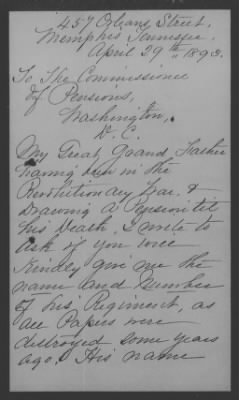 457 Orleans Street,
Memphis Tennessee.
April 29th, 1893.
To The Commissioner
of Pensions,
Washington,
D. C.
My Great Grand Father
having been in the
Revolutionary War &
Drawing a Pension til
his Death. I write to
ask of you will
kindly give me the
name and number
of his Regiment, as
all Papers were
destroyed some years
ago. His name